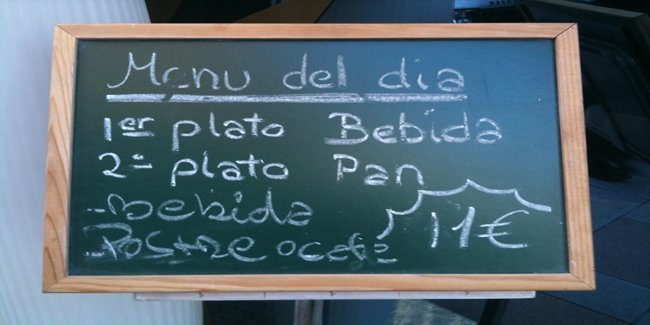 Menu del dia
1er plato Bebida
2º plato Pan
-Bebida
-Postre o cafe
11€